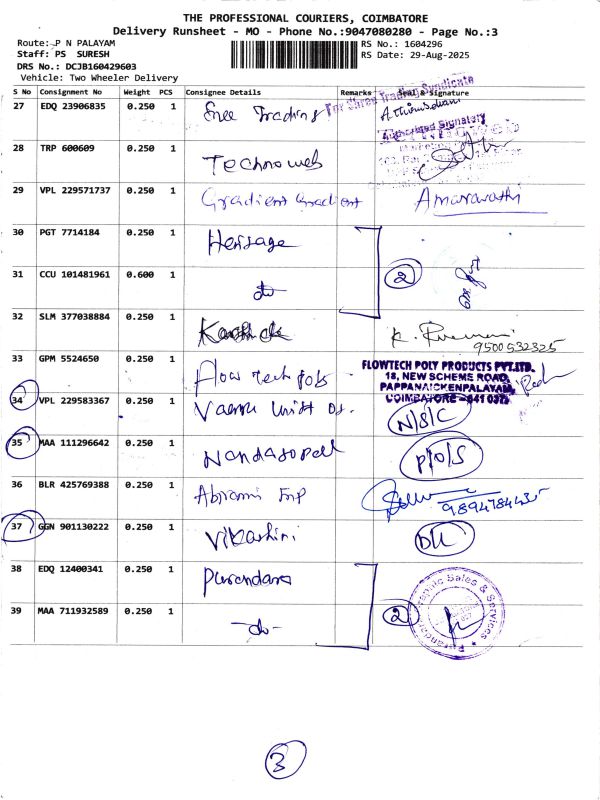 THE PROFESSIONAL COURIERS, COIMBATORE
Delivery Runsheet - MO - Phone No.:9047080280 - Page No.:3
Route: P N PALAYAM
RS No.: 1604296
Staff: PS SURESH
RS Date: 29-Aug-2025
DRS No.: DCJB160429603
Vehicle: Two Wheeler Delivery
S No Consignment No Weight PCS Consignee Details Remarks Seal & Signature
For Shree Trading Syndicate
27 EDQ 23906835 0.250 1 Sree Trading
Authorised Signatory
28 TRP 600609 0.250 1 Technoweb
29 VPL 229571737 0.250 1 Gradient Gradient Amaravathi
30 PGT 7714184 0.250 1 Heritage
31 CCU 101481961 0.600 1 do 2
32 SLM 377038884 0.250 1
9500532325
33 GPM 5524650 0.250 1 Flow tech
FLOWTECH POLY PRODUCTS PVT.LTD.
18, NEW SCHEME ROAD,
PAPPANAICKENPALAYAM,
COIMBATORE - 641 037.
34 VPL 229583367 0.250 1 N/S/C
35 MAA 111296642 0.250 1 Nandagopal P/O/S
36 BLR 425769388 0.250 1 Abirami
37 GGN 901130222 0.250 1 Vikashini DL
38 EDQ 12400341 0.250 1 Purandara
39 MAA 711932589 0.250 1 do 2
3